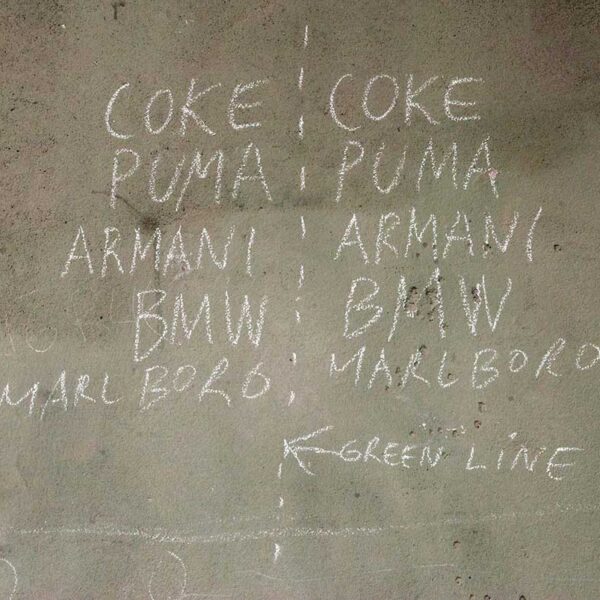 COKE COKE
PUMA PUMA
ARMANI ARMANI
BMW BMW
MARLBORO MARLBORO
GREEN LINE